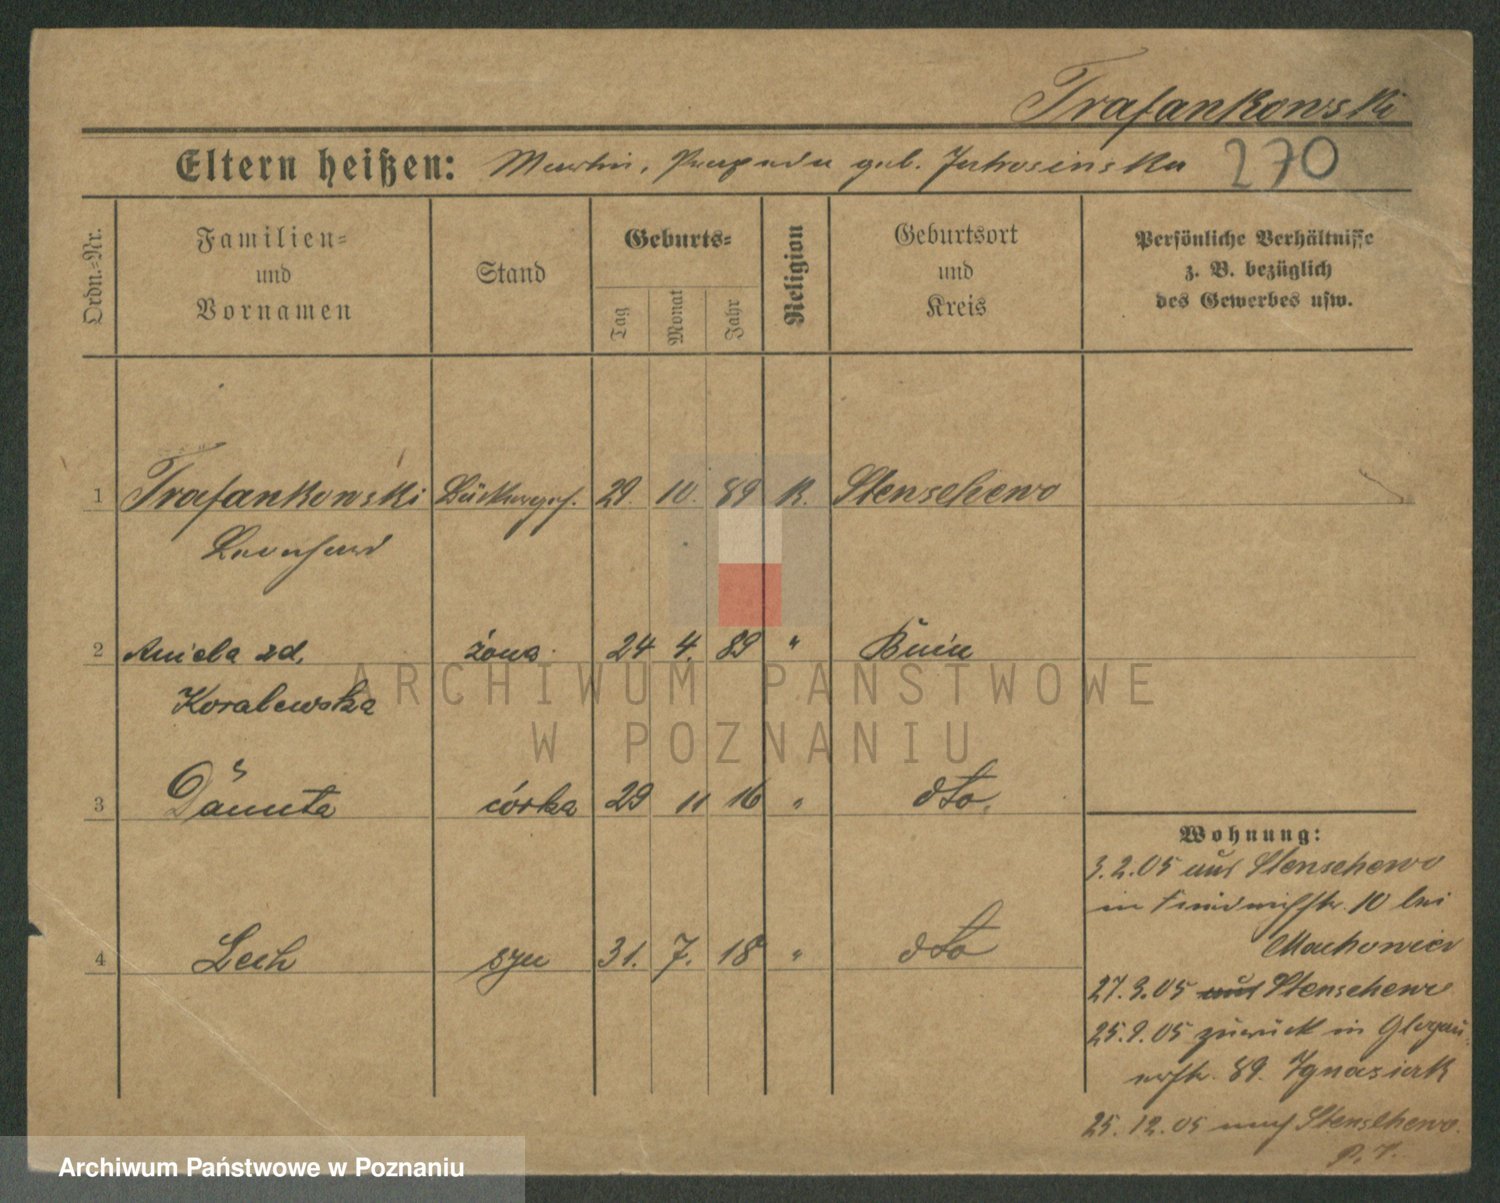 Trafankowski
Eltern heißen: Martin, geb. Jutrosinska 270
Ordn.=Nr.
Familien=
und
Vornamen
Stand
Geburts=
Tag
Monat
Jahr
Religion
Geburtsort
und
Kreis
Persönliche Verhältnisse
z. B. bezüglich
des Gewerbes usw.
1 Trafankowski 29. 10. 89 K. Stenschewo
Leonhard
2 Aniela zd. żona 24 4. 89 " Bnin
Koralewska
3 Danuta córka 29 11 16 " dto.
4 Lech syn 31. 7. 18 " dto
Wohnung:
3.2.05 aus Stenschewo
in 10 bei
Machowicz
27.3.05 aus Stenschewo
25.9.05 zurück in Glogau
erstr. 89. Ignasiak
25.12.05 nach Stenschewo.
P. T.
ARCHIWUM PAŃSTWOWE
W POZNANIU
Archiwum Państwowe w Poznaniu